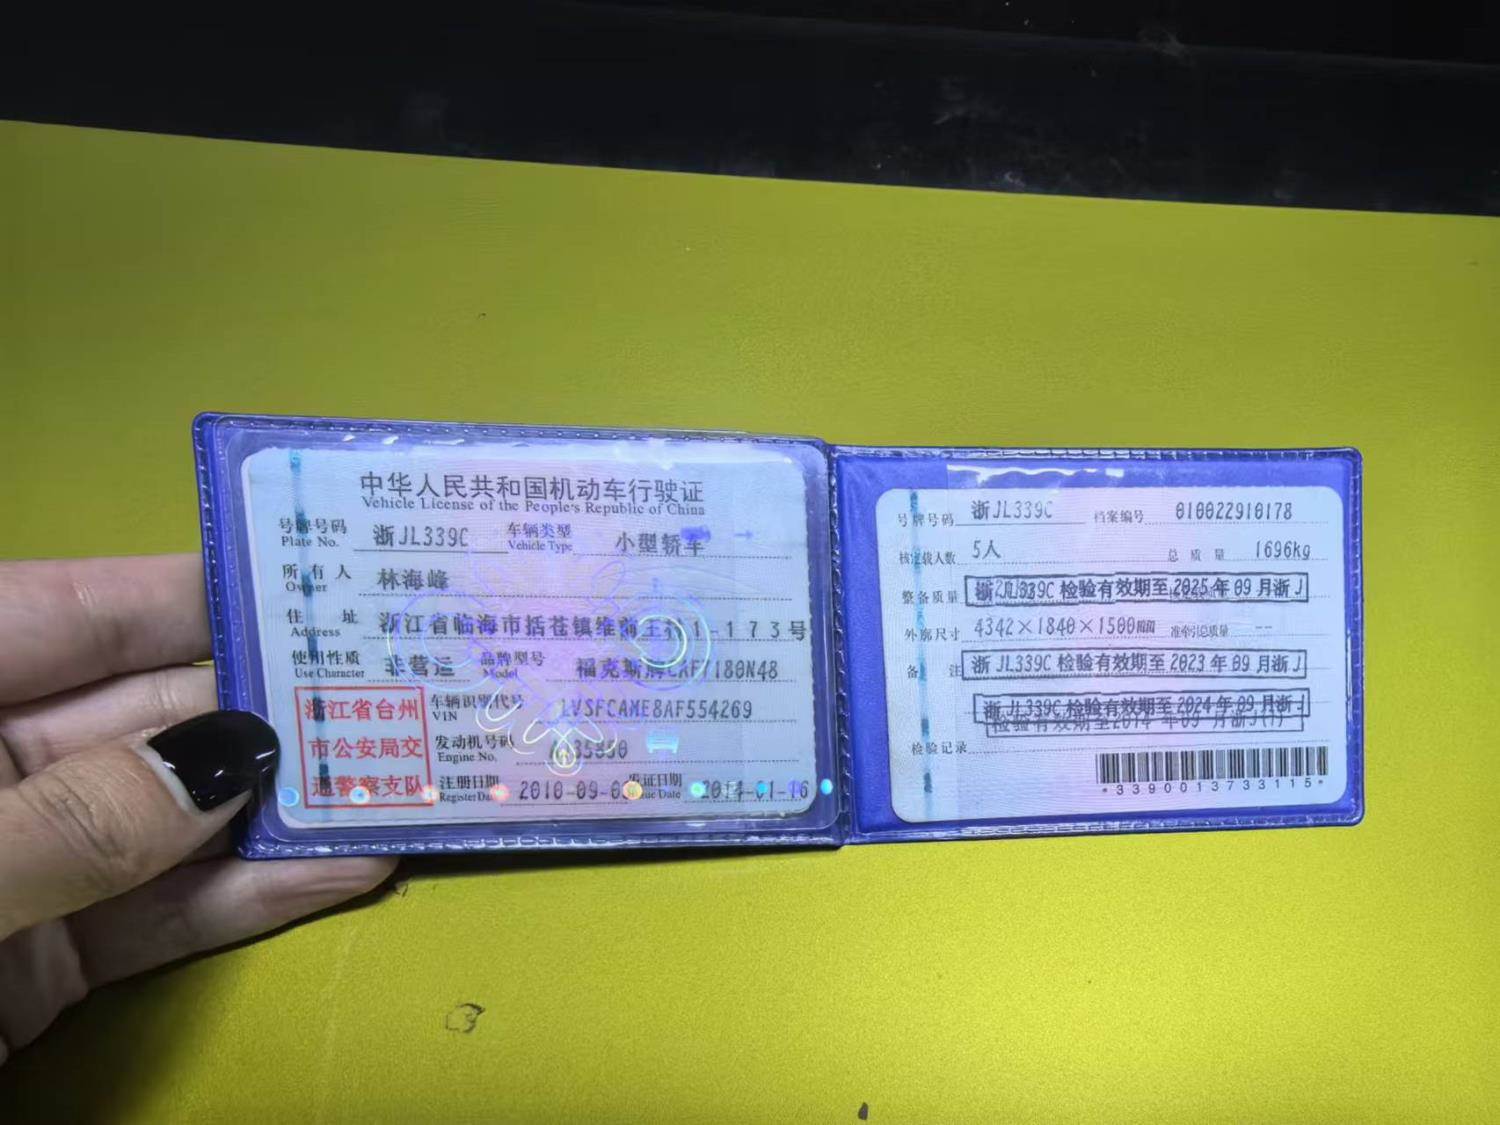 中华人民共和国机动车行驶证
Vehicle License of the People's Republic of China
号牌号码 浙JL339C 车辆类型 小型轿车
Plate No. Vehicle Type
所有人 林海峰
Owner
住址 浙江省临海市括苍镇维前王村1-173号
Address
使用性质 非营运 品牌型号 福克斯牌CAF7180N48
Use Character Model
浙江省台州
市公安局交
通警察支队
车辆识别代号 LVSFCAME8AF554269
VIN
发动机号码
Engine No.
注册日期 2010-09-0 发证日期 2014-01-16
Register Date Issue Date
号牌号码 浙JL339C 档案编号 010022910178
核定载人数 5人 总质量 1696kg
整备质量
浙JL339C 检验有效期至 2025 年 09 月浙J
外廓尺寸 4342×1840×1500mm 准牵引总质量 --
备注 浙JL339C 检验有效期至 2023 年 09 月浙J
浙JL339C 检验有效期至 2024 年 09 月浙J
检验有效期至 2014 年 09 月浙J(1)
检验记录
*3390013733115*